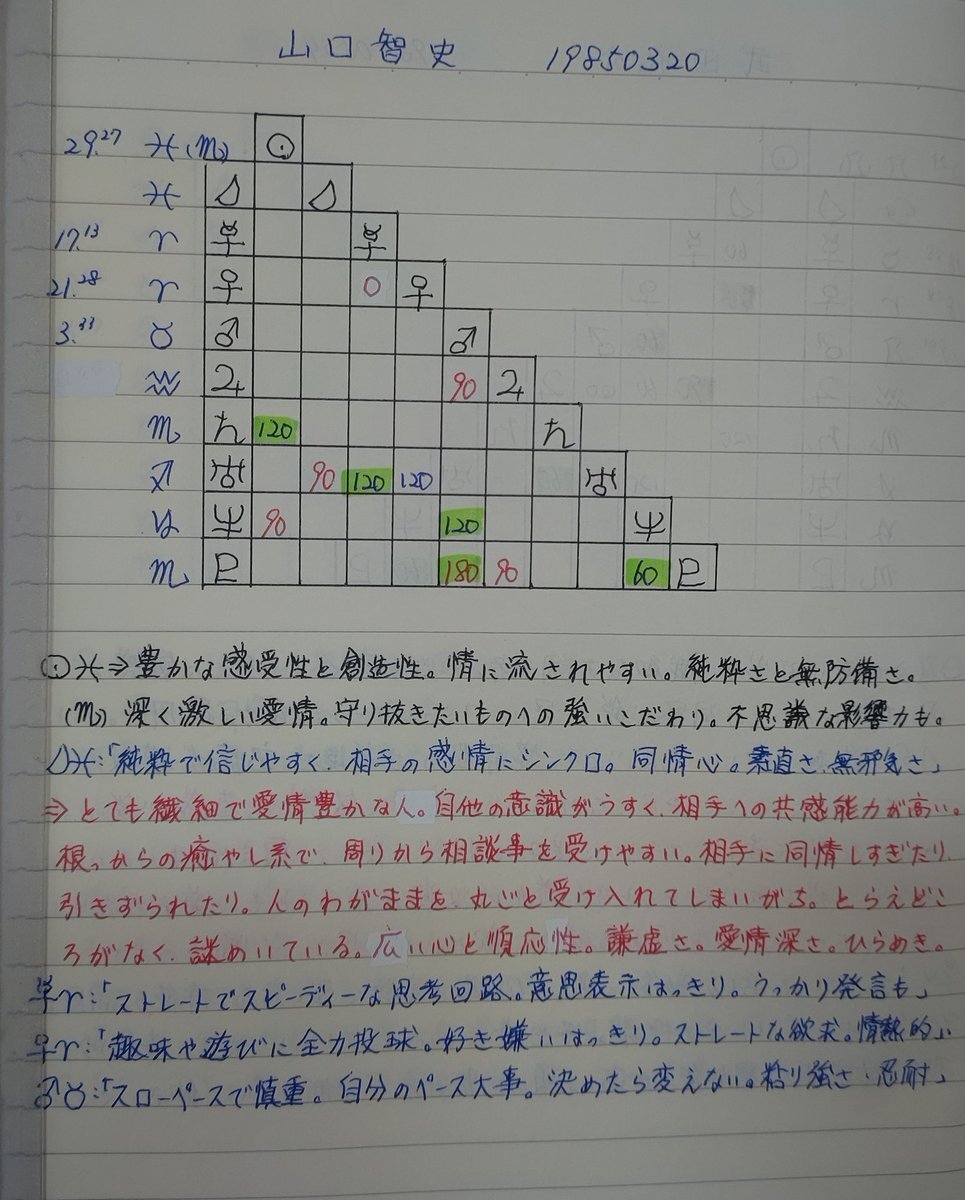 山口智史 19850320
29.27 ♓(♏) ☉
♓ ☽ ☽
17.13 ♈ ☿ ☿
21.28 ♈ ♀ 0 ♀
3.33 ♉ ♂ ♂
♒ ♃ 90 ♃
♏ ♄ 120 ♄
♐ ♅ 90 120 120 ♅
♑ ♆ 90 120 ♆
♏ ♇ 180 90 60 ♇
☉♓⇒豊かな感受性と創造性。情に流されやすい。純粋さと無防備さ。
(♏) 深く激しい愛情。守り抜きたいものへの強いこだわり。不思議な影響力も。
☽♓:「純粋で信じやすく、相手の感情にシンクロ。同情心。素直さ、無邪気さ」
⇒とても繊細で愛情豊かな人。自他の意識がうすく、相手への共感能力が高い。
根っからの癒やし系で、周りから相談事を受けやすい。相手に同情しすぎたり、
引きずられたり。人のわがままを、丸ごと受け入れてしまいがち。とらえどこ
ろがなく、謎めいている。広い心と順応性。謙虚さ。愛情深さ。ひらめき。
☿♈:「ストレートでスピーディーな思考回路。意思表示はっきり。うっかり発言も」
♀♈:「趣味や遊びに全力投球。好き嫌いはっきり。ストレートな欲求。情熱的」
♂♉:「スローペースで慎重。自分のペース大事。決めたら変えない。粘り強さ・忍耐」